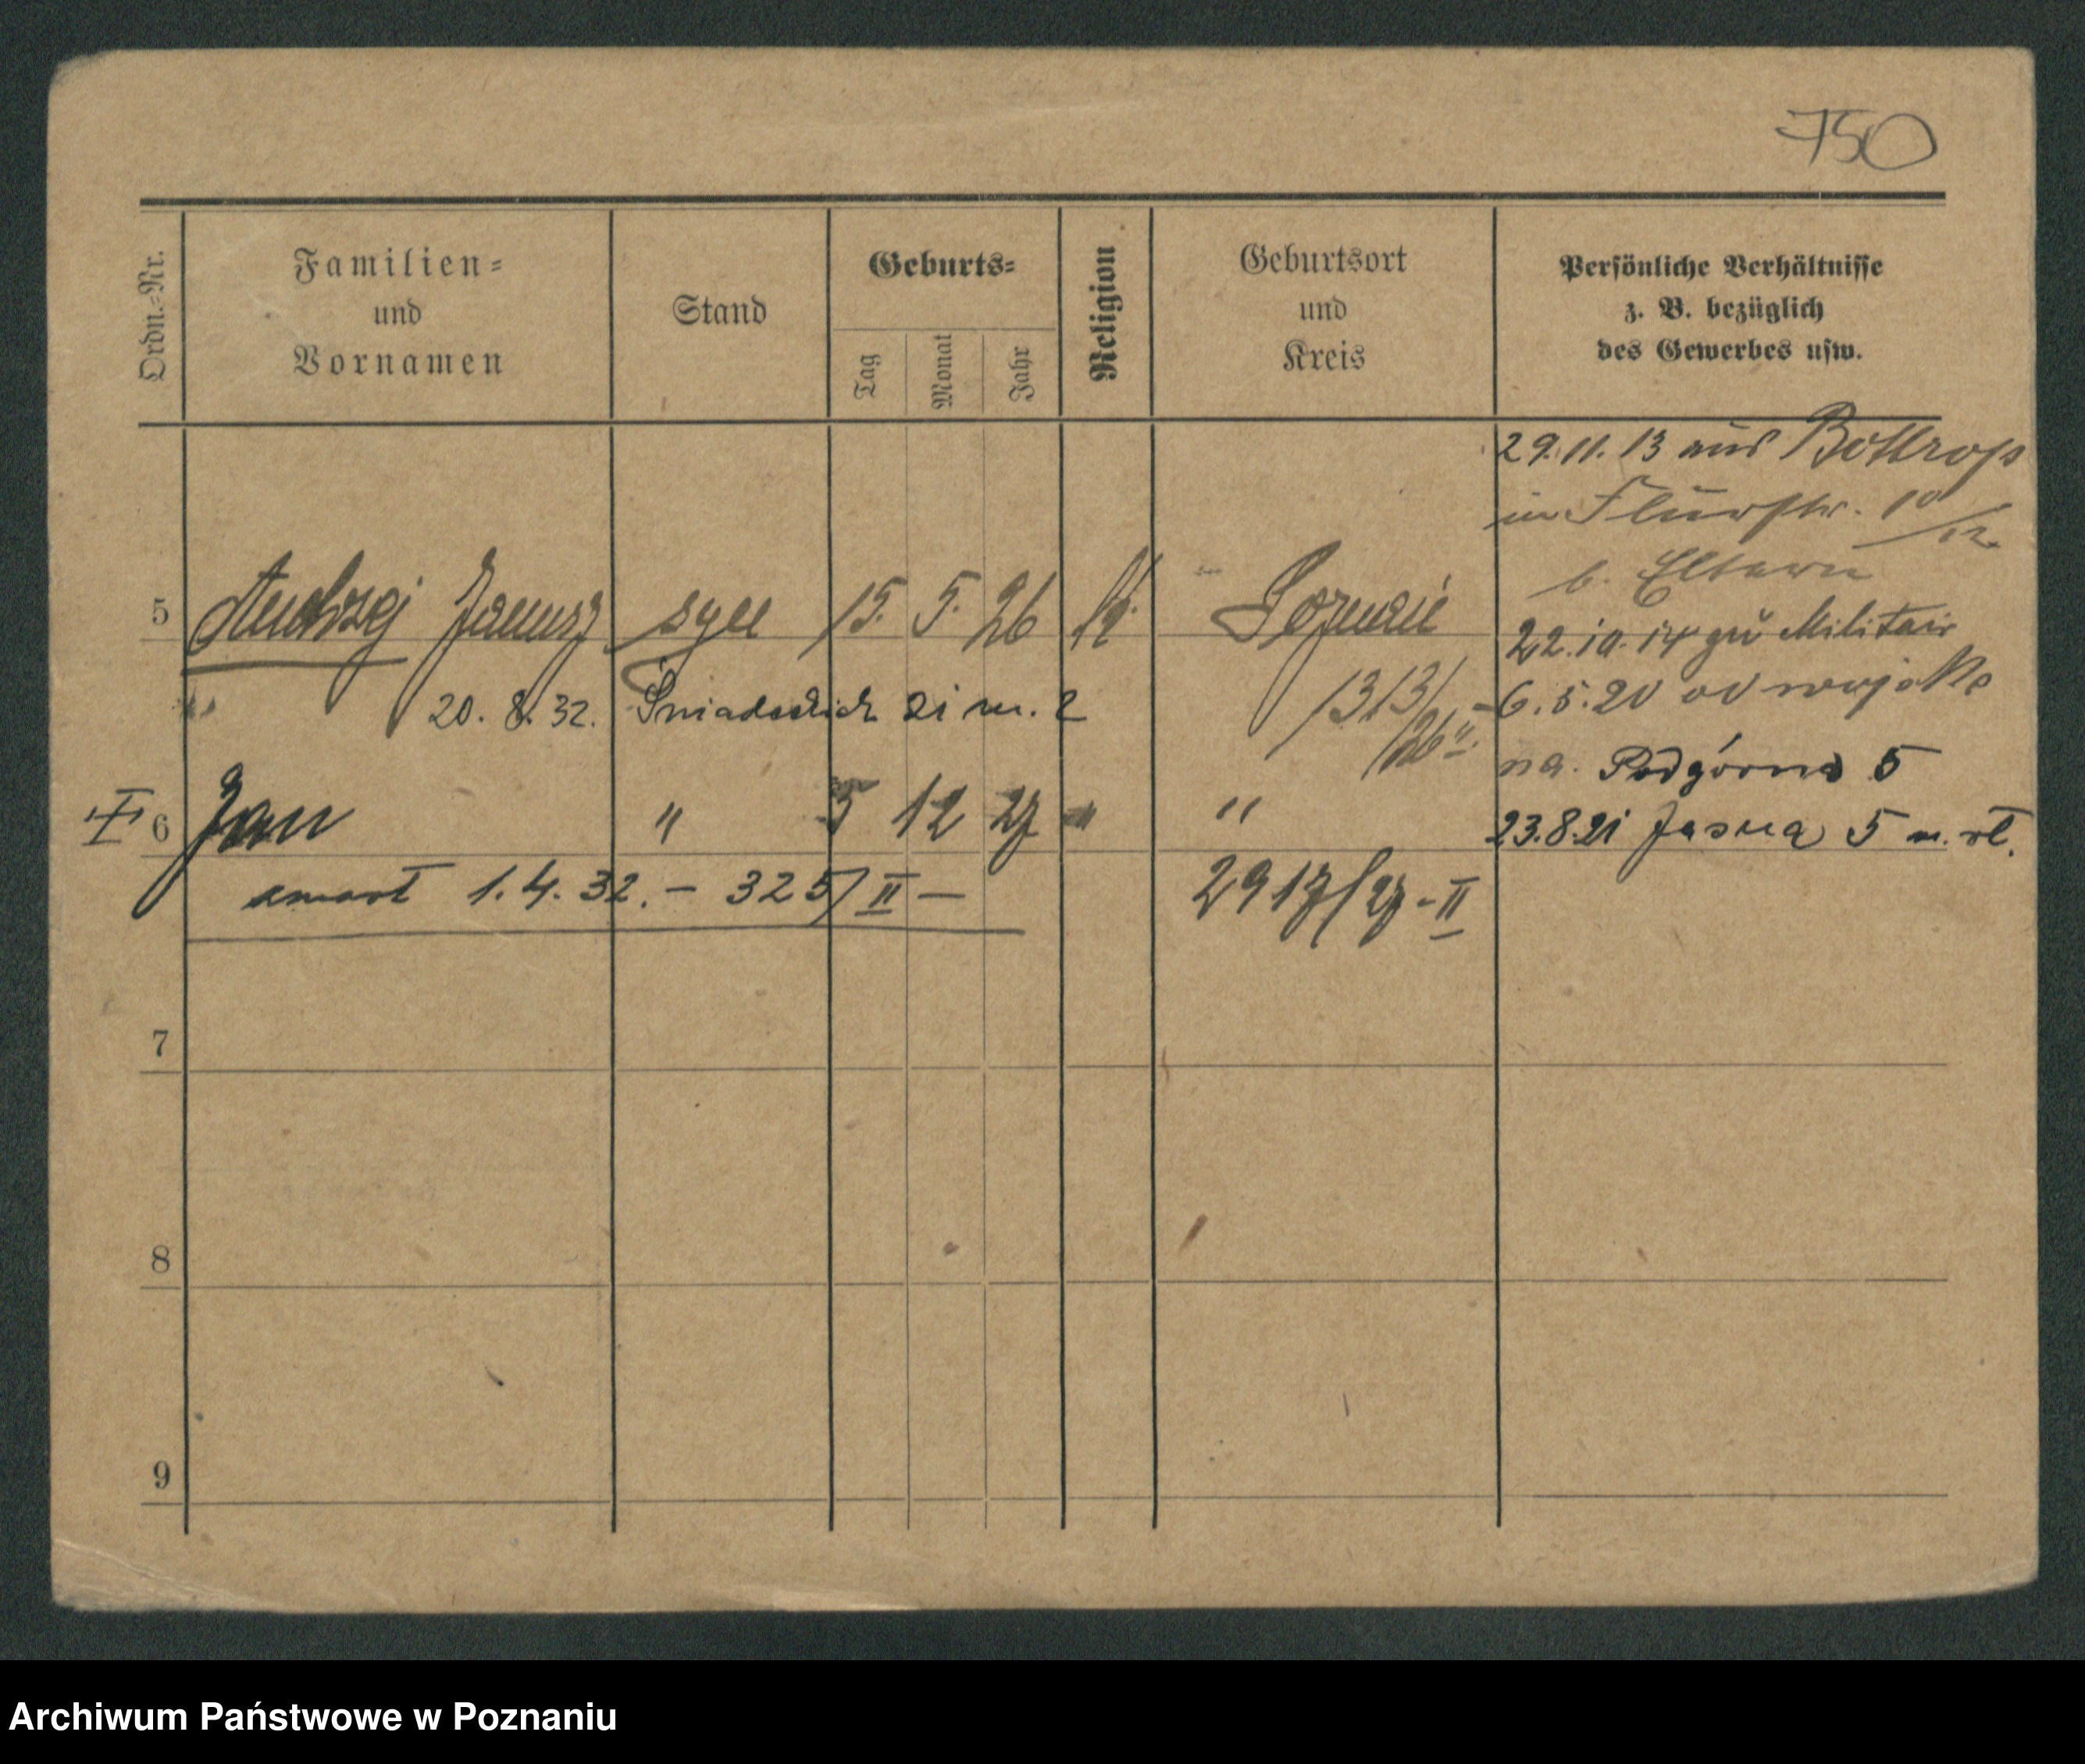 750
Ordn.=Nr.
Familien=
und
Vornamen
Stand
Geburts=
Tag
Monat
Jahr
Religion
Geburtsort
und
Kreis
Persönliche Verhältnisse
z. B. bezüglich
des Gewerbes usw.
29.11.13 aus Bottrop
in Flurstr. 10/12
b. Eltern
5 Andrzej Janusz syn 15. 5. 26 Poznań
22.10.14 zu Militair
1313/26 II
6.5.20 od wojska
20. 8. 32. Śniadeckich 21 m. 2
na. Podgórna 5
6 Jan " 5 12 27 " "
23.8.21 Jasna 5 m.
zmarł 1.4.32. – 325/II –
2917/27 - II
7
8
9
Archiwum Państwowe w Poznaniu